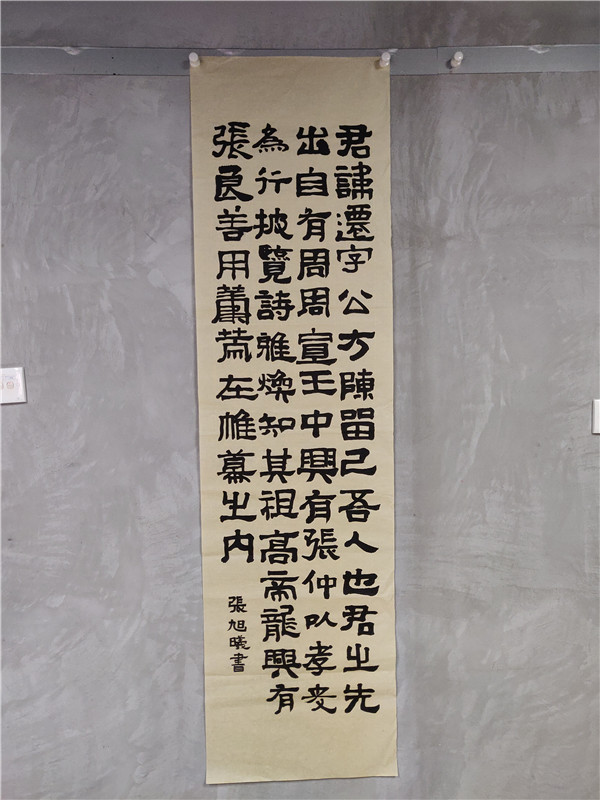 君諱遷字公方陳留己吾人也君之先
出自有周周宣王中興有張仲以孝友
為行披覽詩雅煥知其祖高帝龍興有
張良善用籌策在帷幕之內
張旭曦書